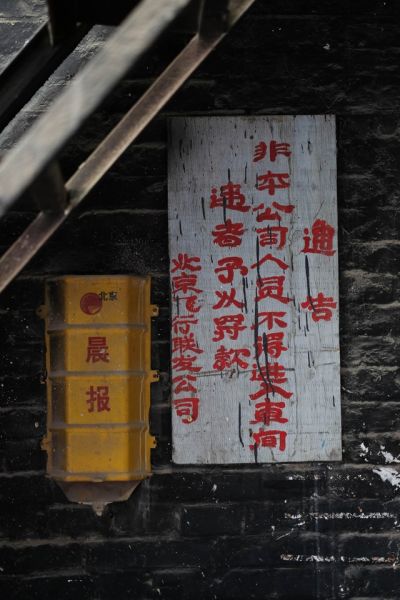 通告
非本公司人员不得進入車间
违者予以罚款
北京飞行联发公司
北京
晨报